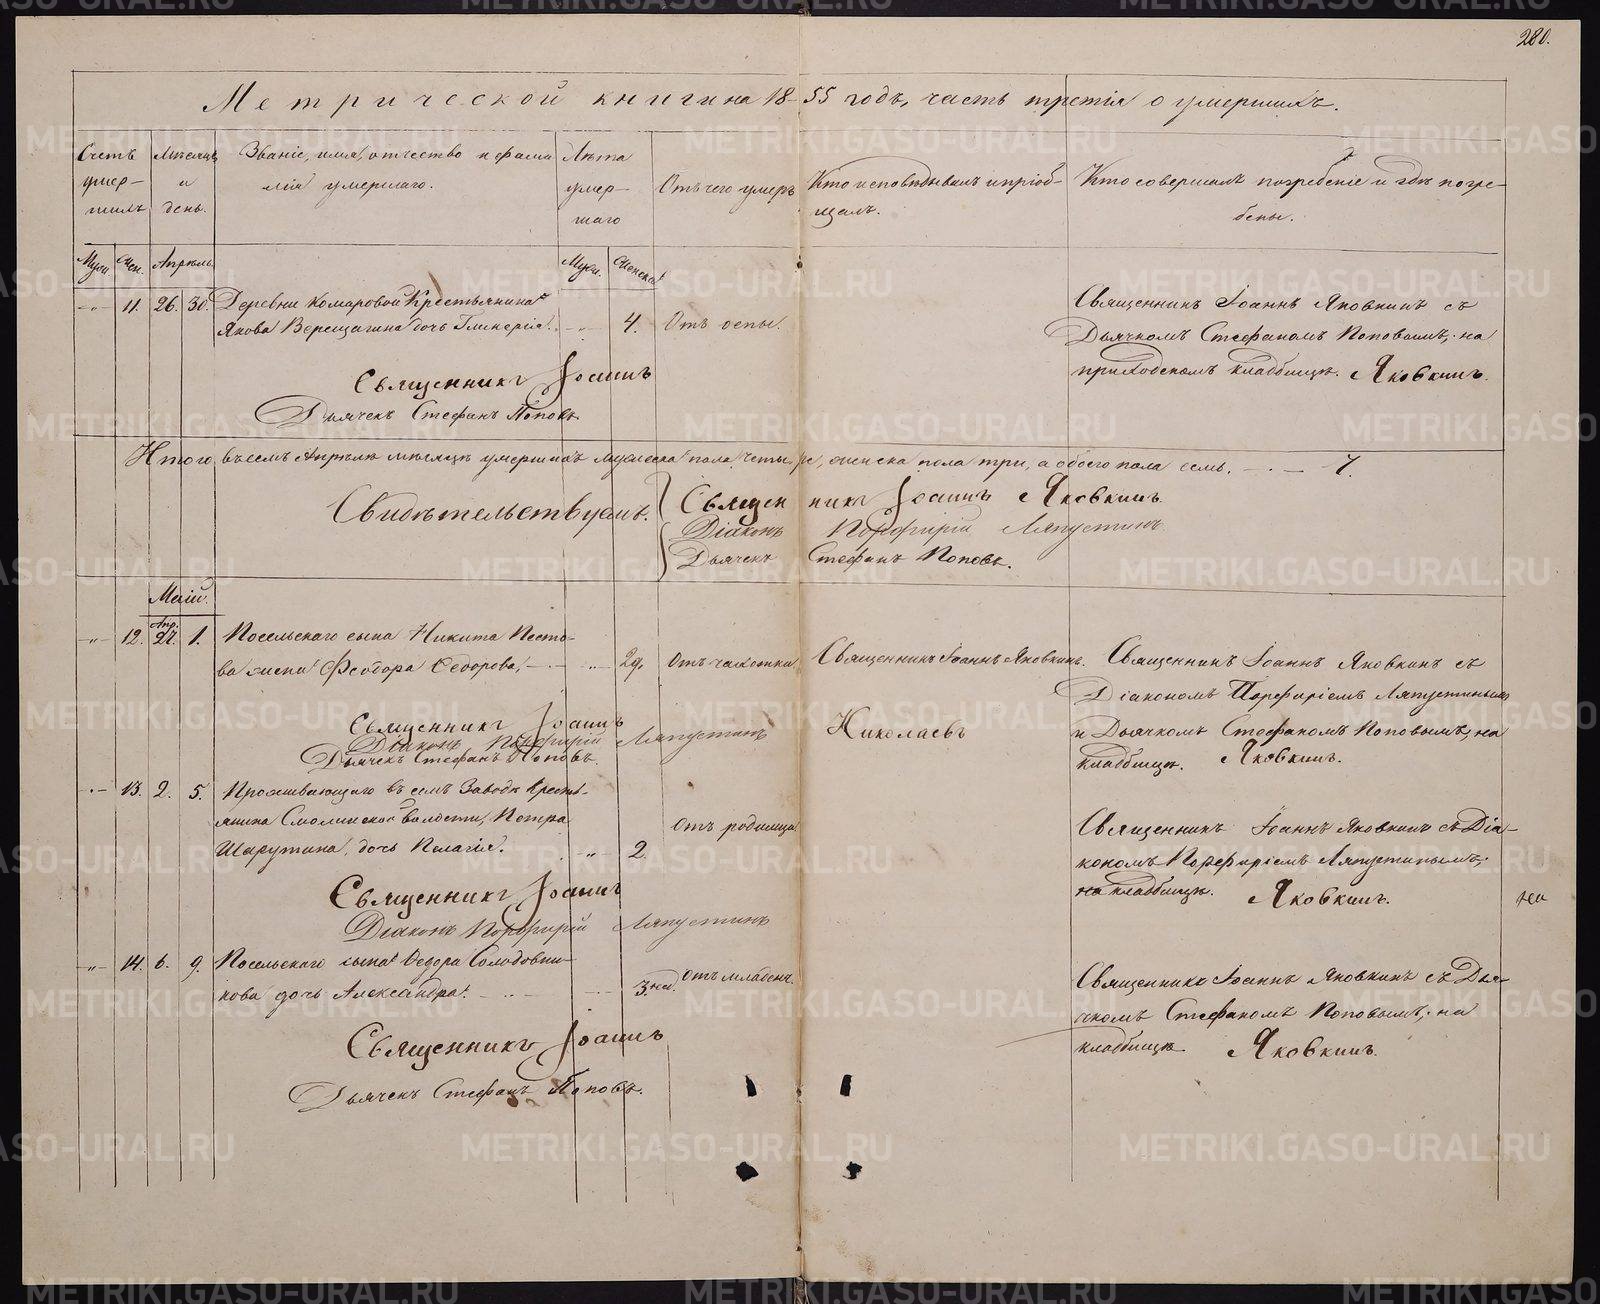 280.
Метрической книги на 18-55 годъ, часть третія о умершихъ.
Счетъ умер-шихъ
Мѣсяцъ и день.
Званіе, имя, отчество и фами-
лія умершаго.
Лѣта умер-шаго
Отъ чего умеръ
Кто исповѣдывалъ и пріоб-
щалъ.
Кто совершалъ погребеніе и гдѣ погре-
бены.
Муж. Жен. Апрѣль Муж. Женска
-"- 11. 26. 30. Деревни Комаровой Крестьянина
Якова Верещагина дочь Гликерія. -"- 4. Отъ оспы.
Священникъ Іоаннъ Яковкинъ съ
Дьячкомъ Стефаномъ Поповымъ, на
приходскомъ кладбищѣ. Яковкинъ.
Священникъ Іоаннъ
Дьячекъ Стефанъ Поповъ
Итого въ семъ Апрѣлѣ мѣсяцѣ умершихъ мужеска пола четыре, женска пола три, а обоего пола семь. - . - 7.
Свидѣтельствуемъ.
Священникъ Іоаннъ Яковкинъ
Діаконъ Порфирій Ляпустинъ
Дьячекъ Стефанъ Поповъ.
Маій.
-"- 12. Апр. 27. 1. Посельскаго сына Никита Песто-
ва жена Феодора Федорова, -"- 29. Отъ чахотки Священникъ Іоаннъ Яковкинъ.
Священникъ Іоаннъ Яковкинъ съ
Діакономъ Порфиріемъ Ляпустинымъ
и Дьячкомъ Стефаномъ Поповымъ, на
кладбищѣ. Яковкинъ.
Священникъ Іоаннъ
Діаконъ Порфирій Ляпустинъ
Дьячекъ Стефанъ Поповъ.
Николаевъ
-"- 13. 2. 5. Проживающаго въ семъ Заводѣ Кресть-
янина Смолинской волости, Петра
Шарутина, дочь Пелагія. -"- 2. Отъ родимца
Священникъ Іоаннъ Яковкинъ съ Діа-
кономъ Порфиріемъ Ляпустинымъ,
на кладбищѣ. Яковкинъ.
на
Священникъ Іоаннъ
Діаконъ Порфирій Ляпустинъ
-"- 14. 6. 9. Посельскаго сына Федора Солодовни-
кова дочь Александра. 3. нед. Отъ младенч.
Священникъ Іоаннъ Яковкинъ съ Дья-
чкомъ Стефаномъ Поповымъ, на
кладбищѣ Яковкинъ.
Священникъ Іоаннъ
Дьячекъ Стефанъ Поповъ.
METRIKI.GASO-URAL.RU